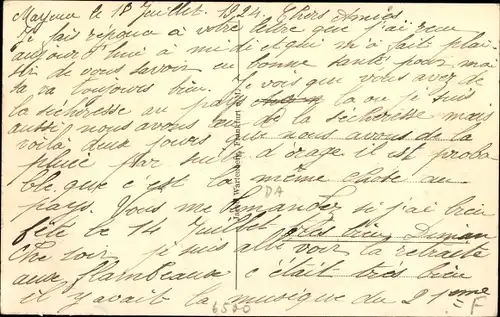 Mayence le 18 Juillet 1924. Chers Amies
Je fais reponce a votre lettre que j'ai recu
aujourd'hui a midi et qui m'a fait plai
sir de vous savoir en bonne santé pour moi
sa va toujours bien. Je vois que vous avez de
la sécheresse au pays la ou je suis
aussi nous avons de la sécheresse mais
voila deux jours que nous avons de la
pluie par suite d'orage il est proba
ble que c'est la même chose au
pays. Vous me demander si j'ai bien
fêté le 14 Juillet très bien Diman
che soir je suis allé voir la retraite
aux flambeaux c'était très bien
il y avait la musique du 21ème
DA
6500
F